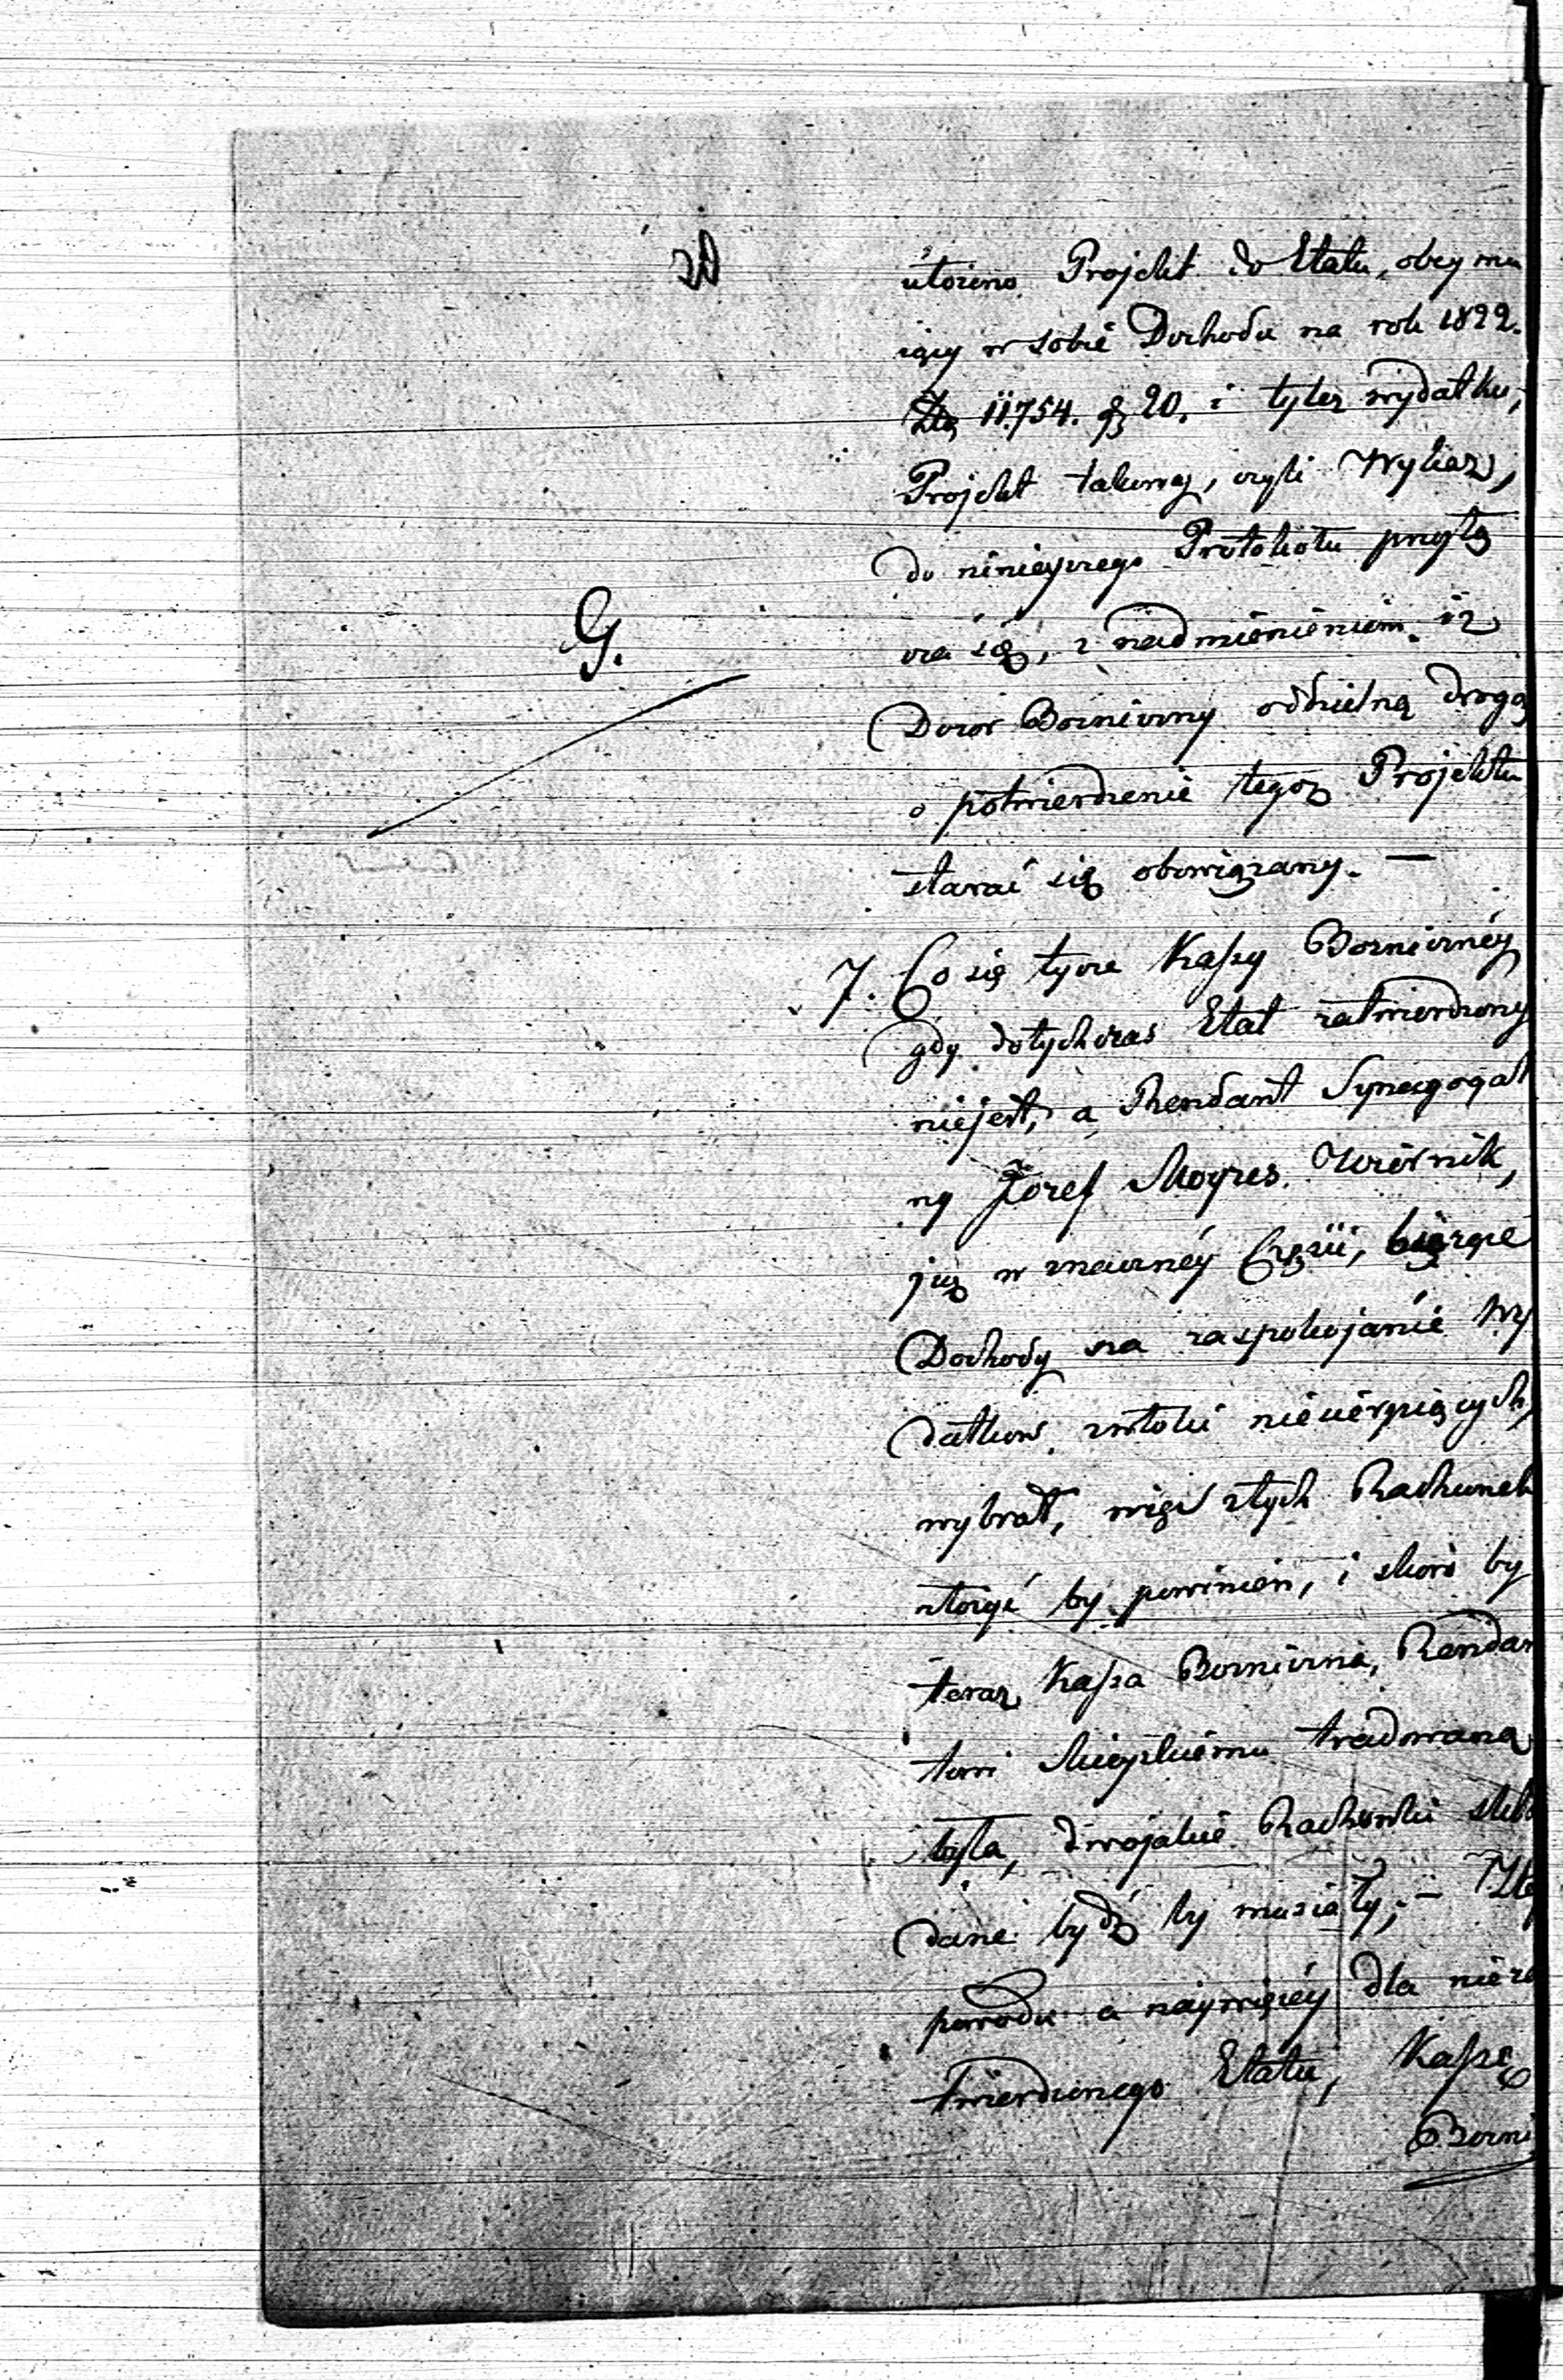 ułożono Projekt do Etatu, obeymu
iący w sobie Dochodu na rok 1822.
Złg 11.754. g 20. i tyleż wydatku,
Projekt takowy, czyli Wykaz,
do ninieyszego Protokołu przyłą
G.
cza się, z nadmienieniem. iż
Dozor Bozniczny oddzielną drogą
o potwierdzenie tegoż Projektu
starać się obowiązany. —
7. Co się tycze Kassy Bozniczney
gdy dotychczas Etat zatwierdzony
niejest, a Rendant Synagogal
ny Jozef Moyzes Zwiernik,
już w znaczney Części, bieżące
Dochody na zaspokojanie Wy
datkow zwłoki niecierpiących,
wybrał, więc ztych Rachunek
złożyć by powinien, i skoro by
teraz Kassa Bozniczna, Rendan
towi Mieyskiemu tradowaną
była, dwojakie Rachunki skła
dane bydź by musiały; —
powodu a naywięcey dla nieza
twierdzonego Etatu, Kassę
Bozni